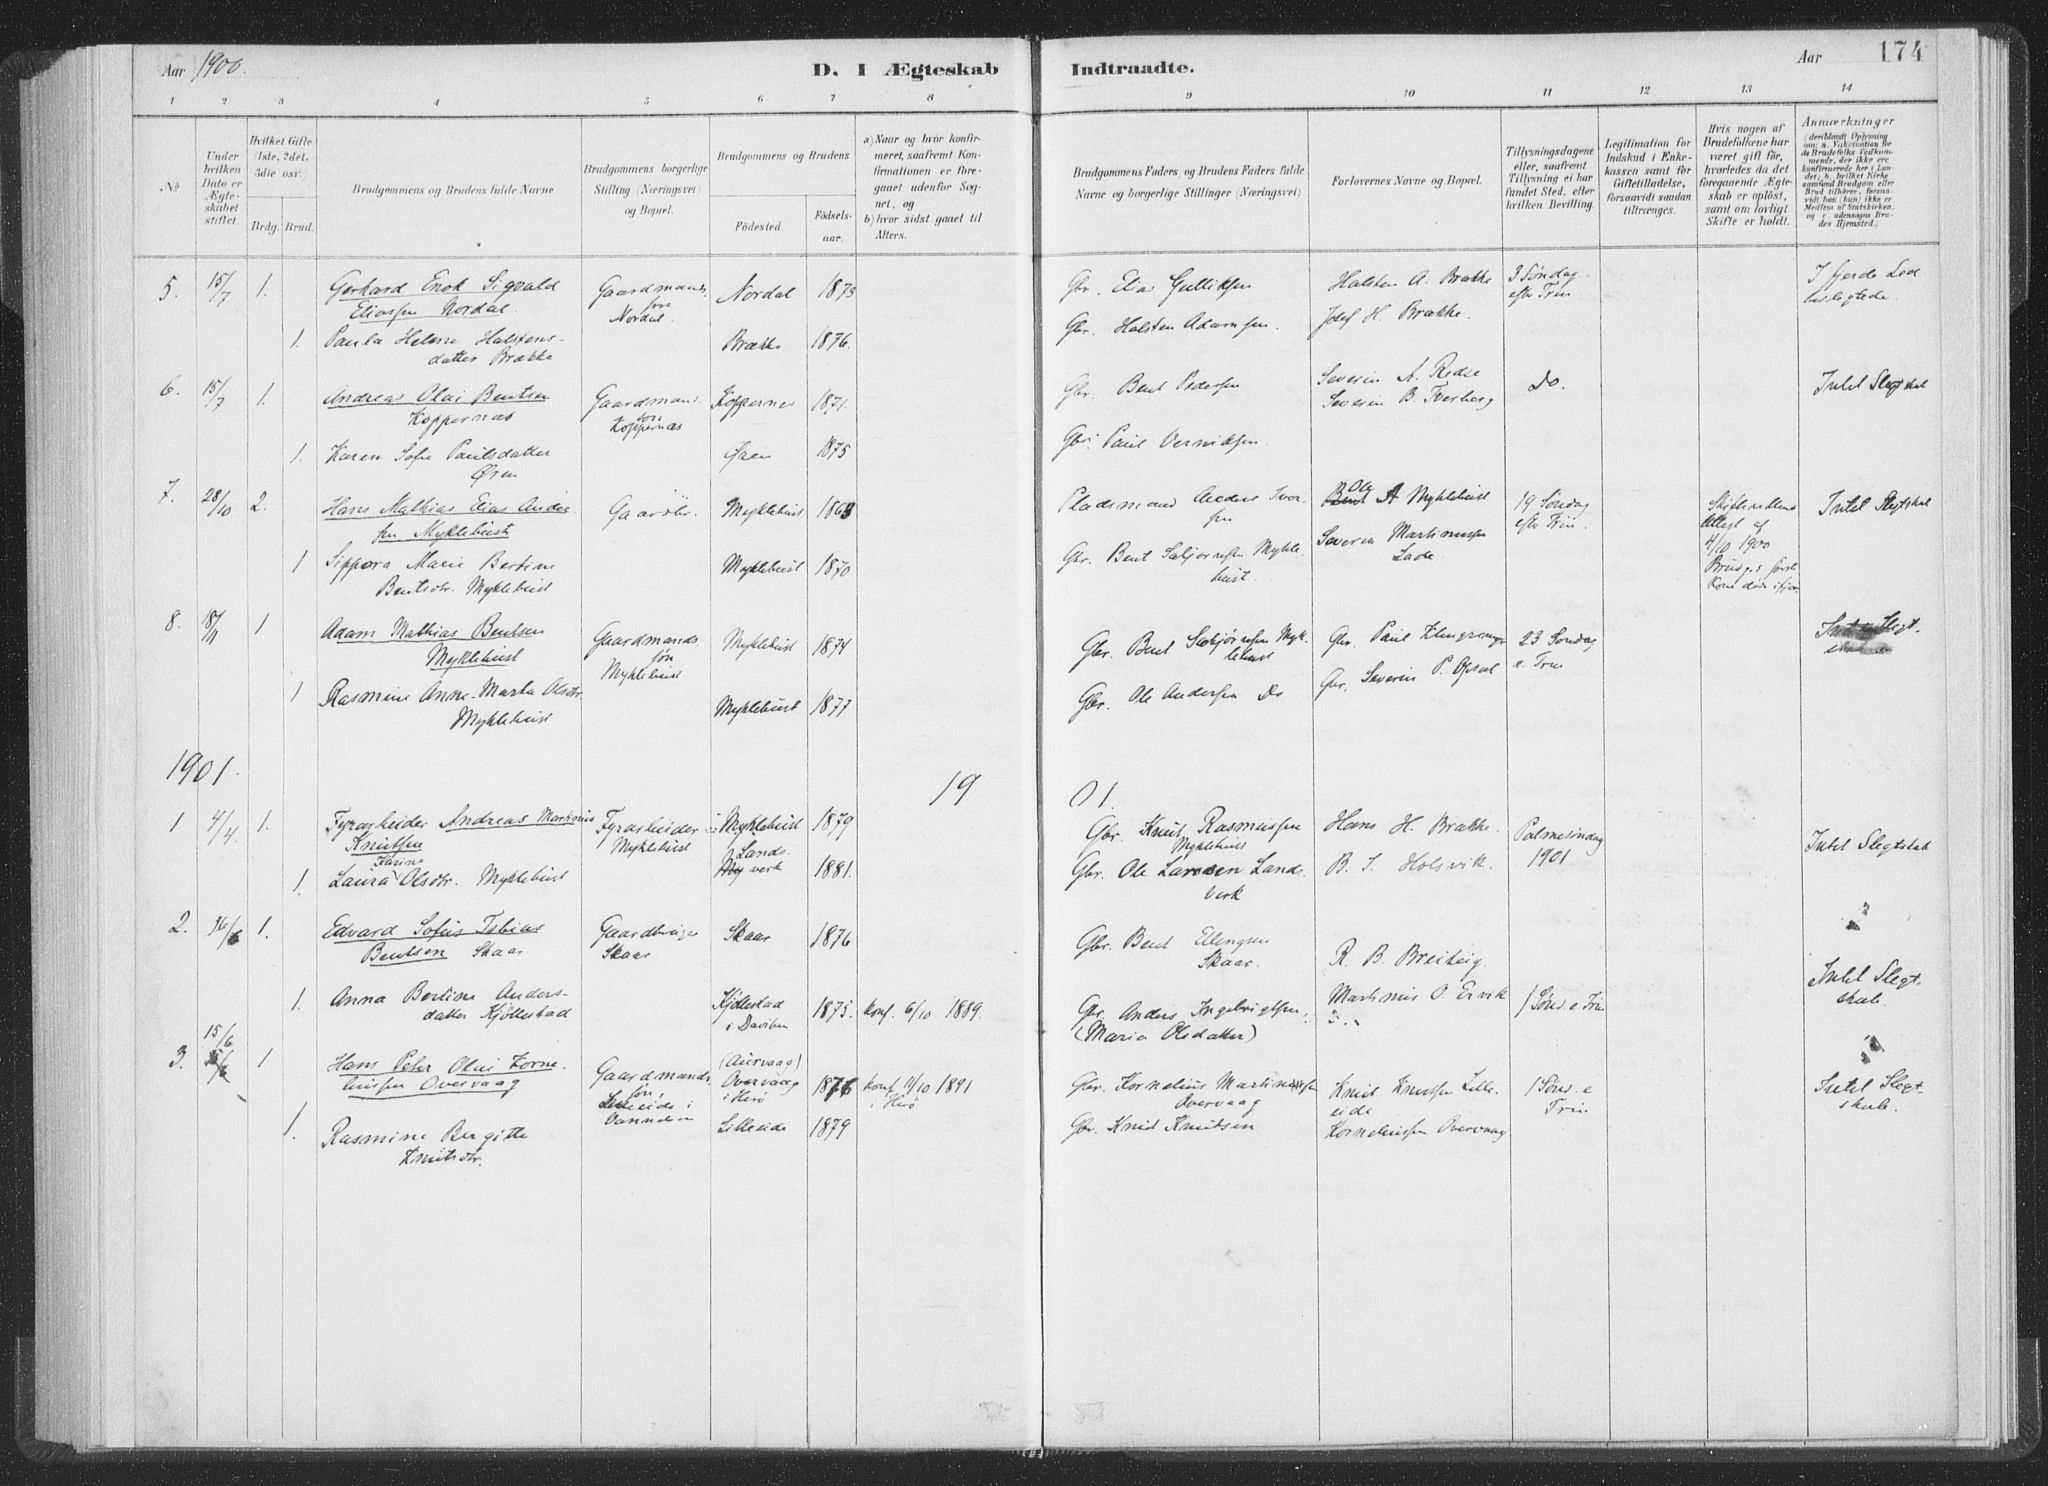 Aar 1900.
D. I Ægteskab
Indtraadte.
Aar
174
1 2 3 4 5 6 7 8 9 10 11 12 13 14
No
Under
hvilken
Dato er
Ægte-
skabet
stiftet.
Hvilket Gifte
(1ste, 2det,
3die osv.)
Brdg. Brud.
Brudgommens og Brudens fulde Navne
Brudgommens borgerlige
Stilling (Næringsvei)
og Bopæl.
Brudgommens og Brudens
Födested.
Födsels-
aar.
a) Naar og hvor konfir-
meret, saafremt Kon-
firmationen er fore-
gaaet udenfor Sog-
net, og
b) hvor sidst gaaet til
Alters.
Brudgommens Faders og Brudens Faders fulde
Navne og borgerlige Stillinger (Næringsvei)
Forlovernes Navne og Bopæl.
Tillysningsdagene
eller, saafremt
Tillysning ei har
fundet Sted, efter
hvilken Bevilling.
Legitimation for
Indskud i Enke-
kassen samt for
Giftetilladelse,
forsaavidt saadan
tiltrænges.
Hvis nogen af
Brudefolkene har
været gift för,
hvorledes da det
foregaaende Ægte-
skab er oplöst,
samt om lovligt
Skifte er holdt.
Anmærkninger
(deriblandt Oplysning
om: a. Vaksination for
de Brudefolks Vedkom-
mende, der ikke ere
konfirmerede her i Lan-
det; b. hvilket Kirke-
samfund Brudgom eller
Brud tilhører, forsaa-
vidt han (hun) ikke er
Medlem af Statskirken,
og c. udensogns Bru-
des Hjemsted.)
5. 15/7 1. Gerhard Enok Sigvald
Eliassen Nordal.
Gaardmands
søn
Nordal.
Nordal 1873
Gbr. Elias Gulliksen
Halsten A. Brække
3 Söndag
efter Trin
I fjerde Led
beslegtede.
1. Paula Heline Halstens-
datter Brække
Brække 1876.
Gbr. Halsten Adamsen.
Josef H. Brække.
6. 15/7 1. Andreas Olai Bentsen
Koppernæs
Gaardmands
søn
Koppernæs
Koppernes 1871.
Gbr. Bent Pedersen
Severin A. Redse
Severin B. Tverberg
Do.
Intet Slegtskab
1. Karen Sofie Paulsdatter
Øren
Øren 1875
Gbr. Paul
7. 28/10 2. Hans Mathias Elias Ander-
sen Myklebust
Gaardbr.
Myklebust 1863
Pladsmand Anders Ivar-
sen
Ole
Bent A Myklebust
19 Söndag
efter Trin.
Intet Slegtskab
4/10 1900
1 Sippora Marie Bertine
Bentsdtr. Myklebust
Myklebust 1870
Gbr. Bent Sæbjørnsen Mykle-
bust.
Severin Martinussen
Lade.
8. 18/11 1 Adam Mathias Bentsen
Myklebust
Gaardmands
søn
Myklebust
Myklebust 1874
Gbr. Bent Sæbjørnsen Myk-
lebust
Gbr. Paul
23 Söndag
e. Trin
Intet Slegt-
1 Rasmine Anne-Marta Olsdtr.
Myklebust
Myklebust 1877
Gbr. Ole Andersen Do
Gbr. Severin P. Opsal
1901.
19 01.
1 4/4 1. Fyrarbeider Andreas Martinus
Knutsen
Fyrarbeider
Myklebust
Myklebust 1879
Gbr. Knut Rasmussen
Myklebust
Hans H. Brække.
Palmesöndag
1901
Intet Slegtskab
1. Laura Karine Olsdtr. Myklebust
Lands-
verk 1881.
Gbr. Ole Larssen Lands-
verk
B. I. Holsvik.
2. 1. Edvard Sofus Tobias
Bentsen Skaar
Gaardbruger
Skaar
Skaar 1876
Gbr. Bent Ellingsen
Skaar.
R. B. Breiteig.
Intet Slegt-
skab.
1. Anna Bertine Anders-
datter Kjöllestad
Kjöllestad
i Daviken
1875. konf. 6/10 1889.
Gbr. Anders Ingebrigtsen,
(Maria Olsdatter)
Martinus O. Ervik
1 Sönd. e Trin
3. 15/6 1 Hans Peter Olai Korne-
liussen Overvaag
Gaardmands
søn,
Lilleeide i
Vannelven
(Aurvaag)
Overvaag
i Herö
1876 konf 11/10 1891
i Herö
Gbr. Kornelius Martinussen
Overvaag
Knut Knutsen Lille-
eide
1 Sönd. e
Trin
Intet Slegt-
skab.
1. Rasmine Bergitte
Knutsdtr.
Lilleeide 1879
Gbr. Knud Knudsen
Korneliussen Overvaag